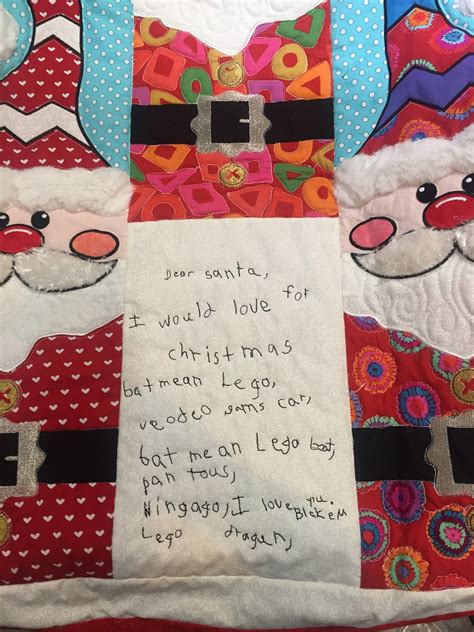 Dear santa,
I would love for
christmas
batmean Lego,
veodeo gams car,
bat mean Lego boat,
pan tous,
Ningago, I love you. BlakeM
Lego dragen,